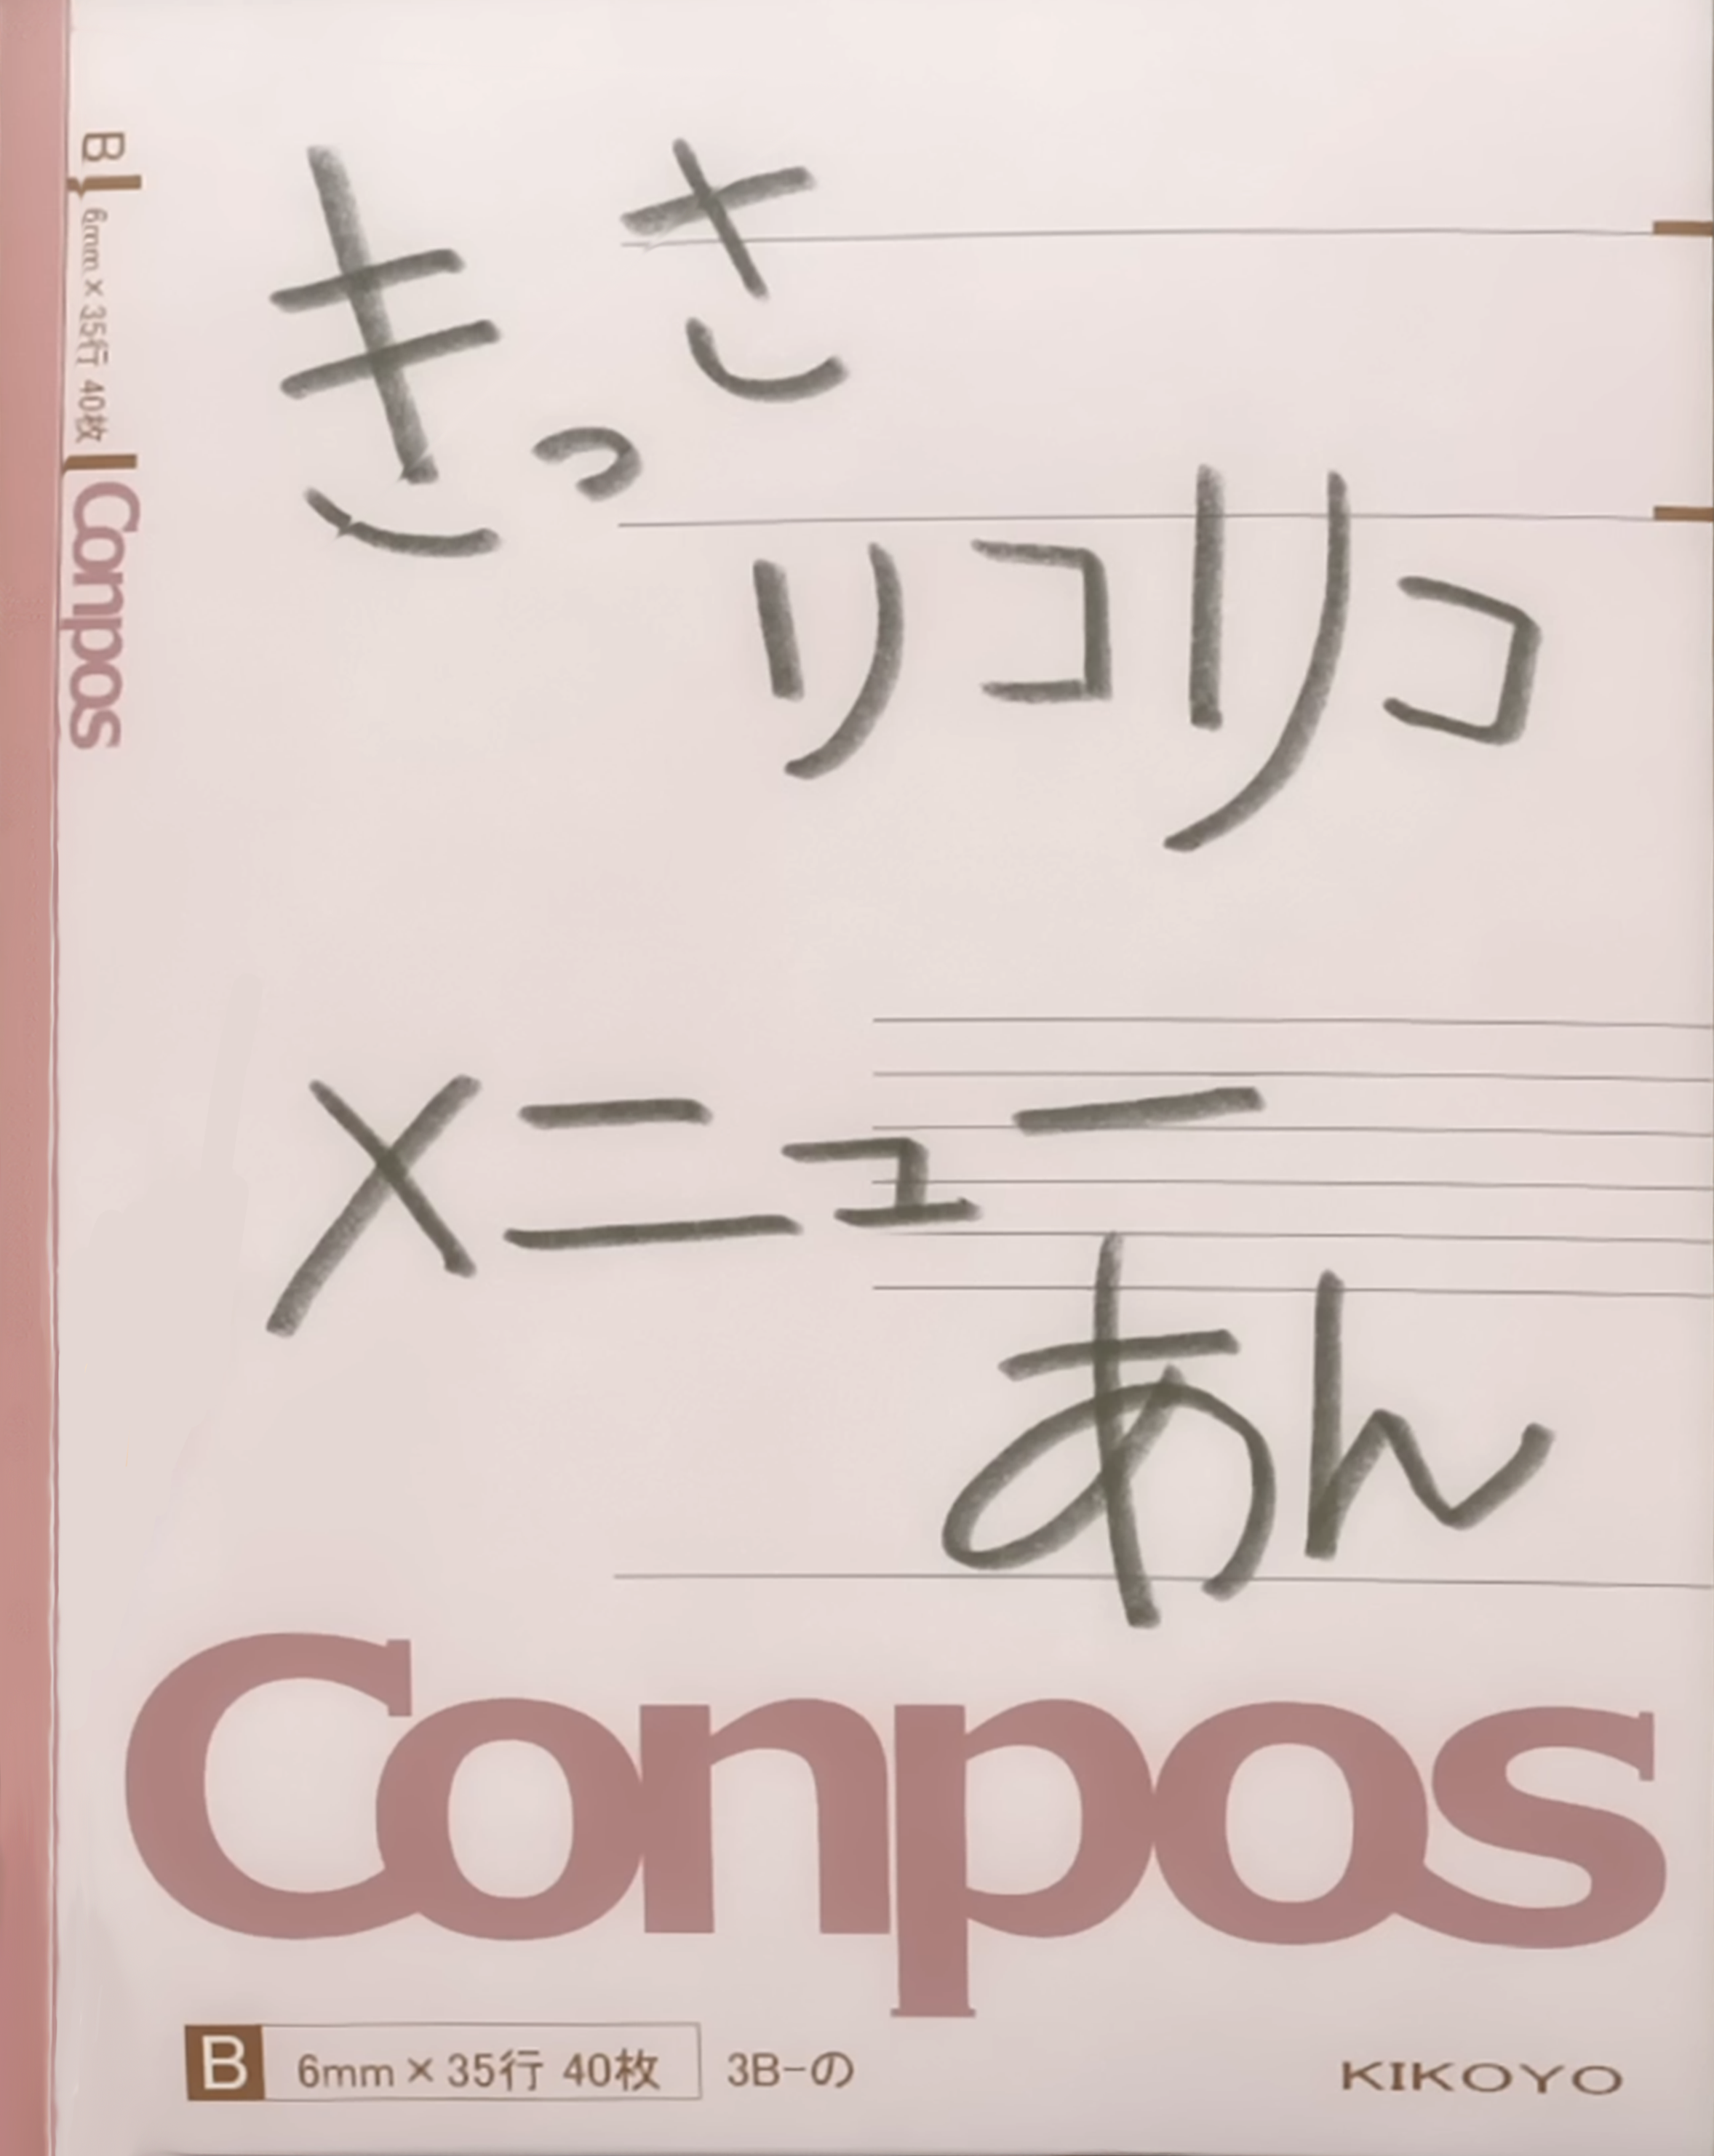 B 6mm×35行 40枚 Conpos
きっさ
リコリコ
メニュー
あん
Conpos
B 6mm×35行 40枚 3B-の
KIKOYO